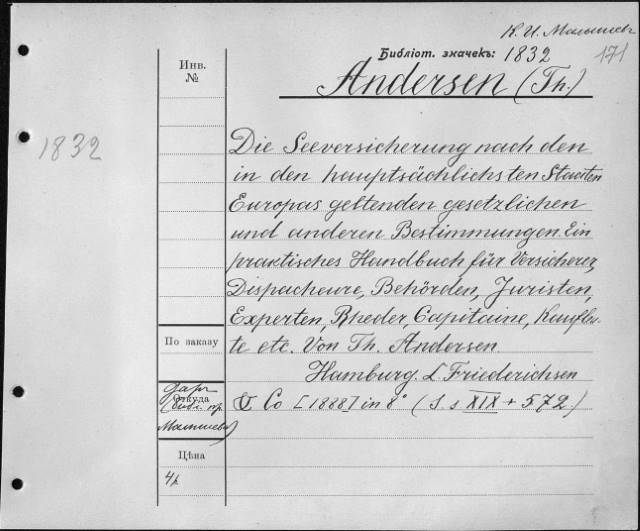 К. И. Малышев
Библіот. значекъ: 1832
171
Andersen (Th.)
Инв.
№
1832
Die Seeversicherung nach den
in den hauptsächlichsten Staaten
Europas geltenden gesetzlichen
und anderen Bestimmungen. Ein
praktisches Handbuch für Versicherer,
Dispacheure, Behörden, Juristen,
Experten, Rheder, Capitaine, Kaufleu-
te etc. Von Th. Andersen.
По заказу
Hamburg. L. Friederichsen
& Co [1888] in 8° (S. s XIX + 572.)
даръ
Откуда
(библ. пр.
Малышева)
Цѣна
4р